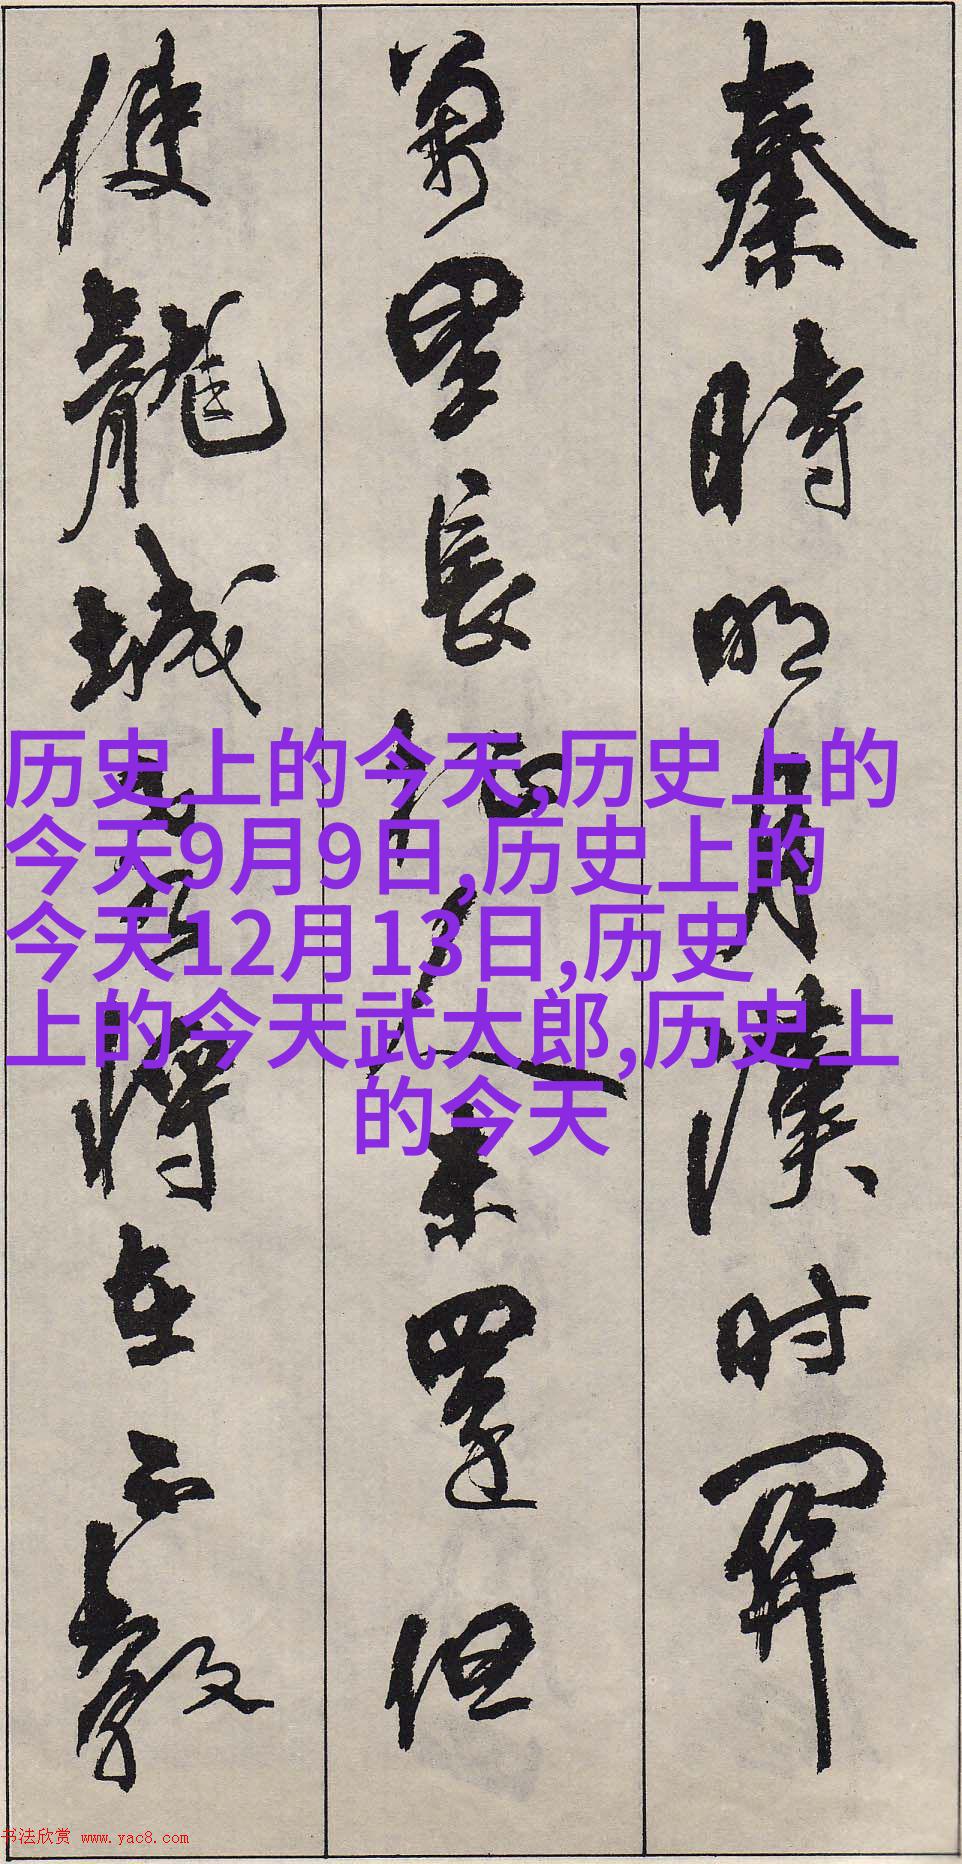 秦時明月漢时関
萬里長征人未還但
使龍城飛將在不教
历史上的今天,历史上的
今天9月9日,历史上的
今天12月13日,历史
上的今天武大郎,历史上
的今天
书法欣赏 www.yac8.com